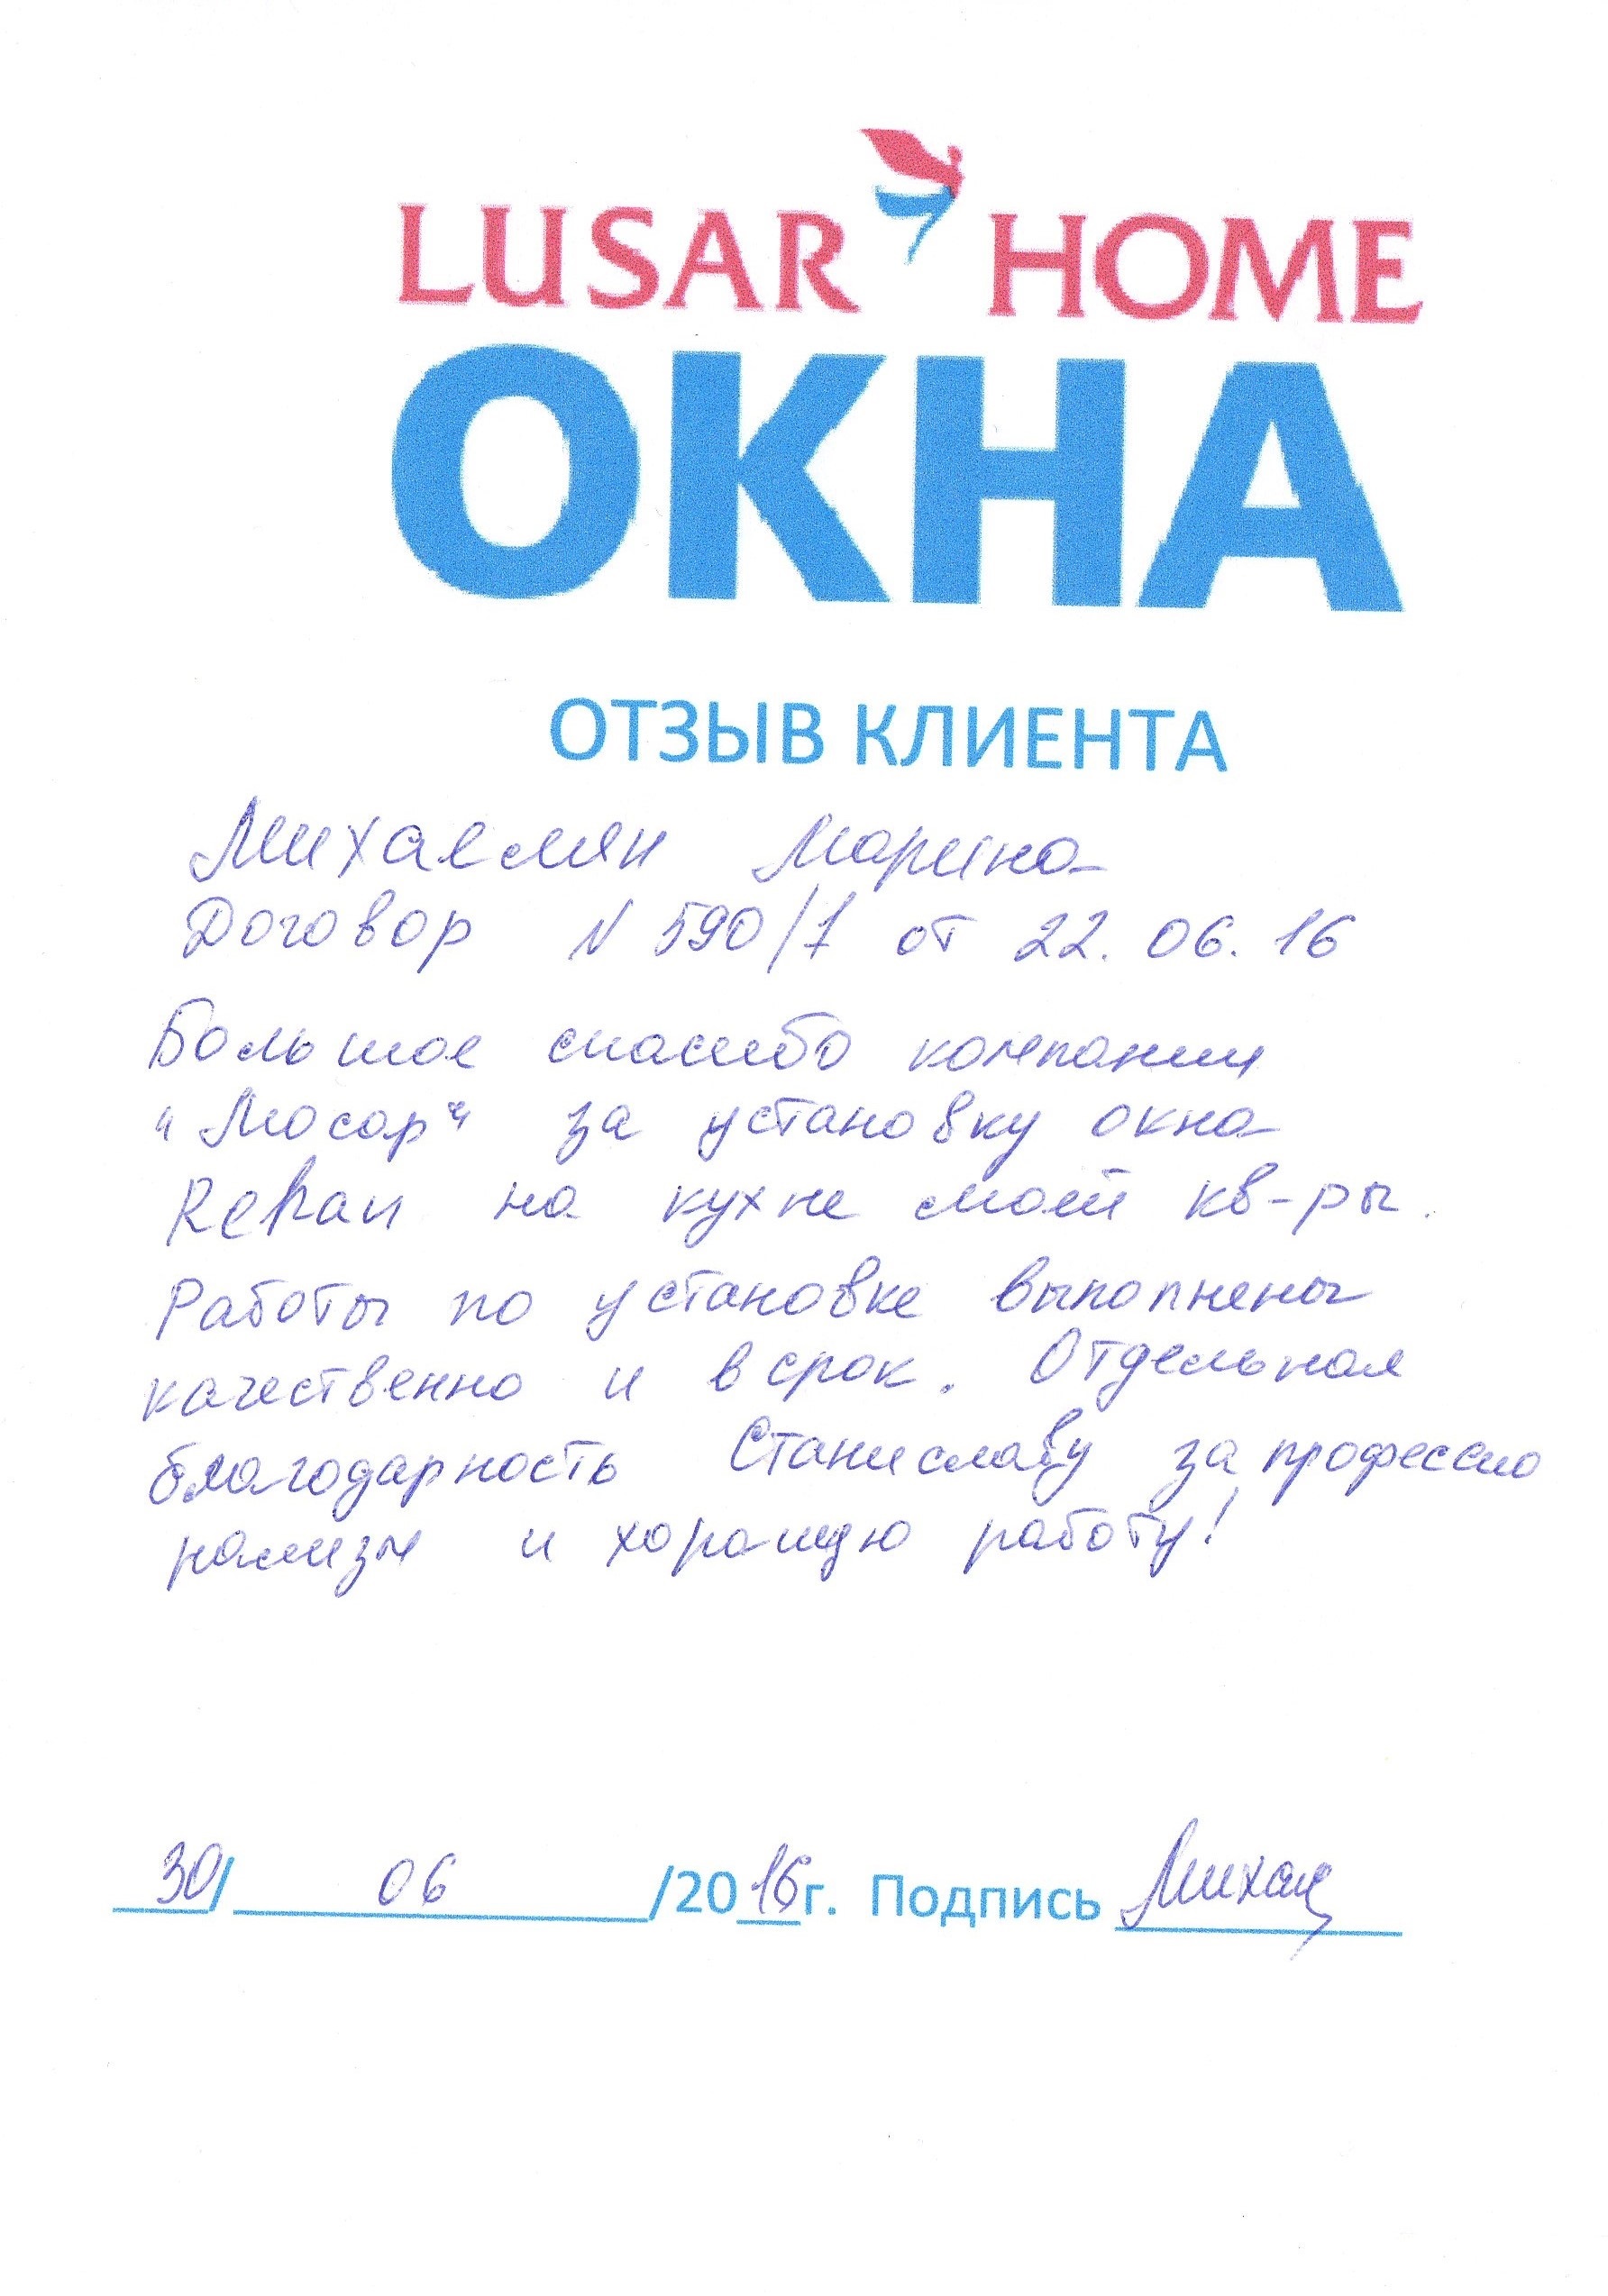 LUSAR HOME
ОКНА
ОТЗЫВ КЛИЕНТА
Михаелян Марина
Договор N 590/1 от 22.06.16
Большое спасибо компании
"Люсар" за установку окна
Rehau на кухне моей кв-ры.
Работы по установке выполнены
качественно и в срок. Отдельная
благодарность Станиславу за профессио
нализм и хорошую работу!
30/ 06 /2016г. Подпись Михаел